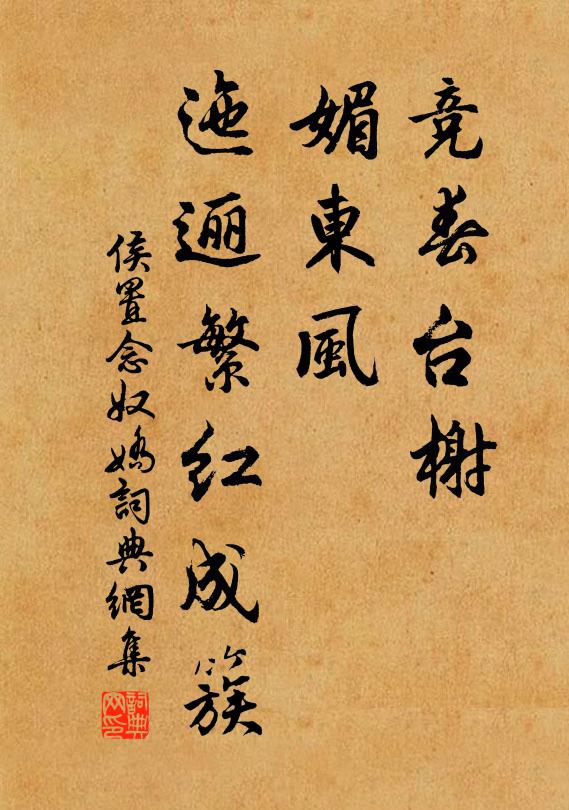 竞春台榭
媚東風
迤逦繁红成簇
侯置念奴嬌詞典網集
詞典网印